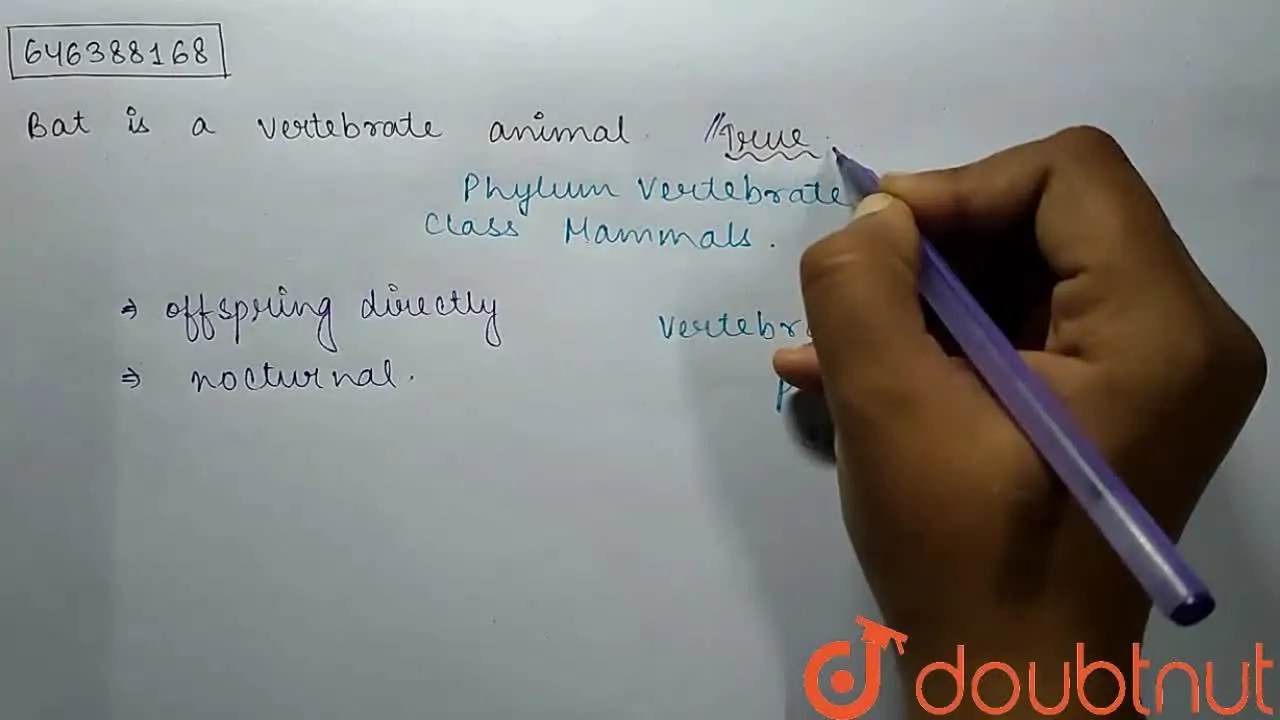 646388168
Bat is a vertebrate animal. //True.
Phylum Vertebrate
Class Mammals.
⇒ offspring directly
⇒ nocturnal.
doubtnut